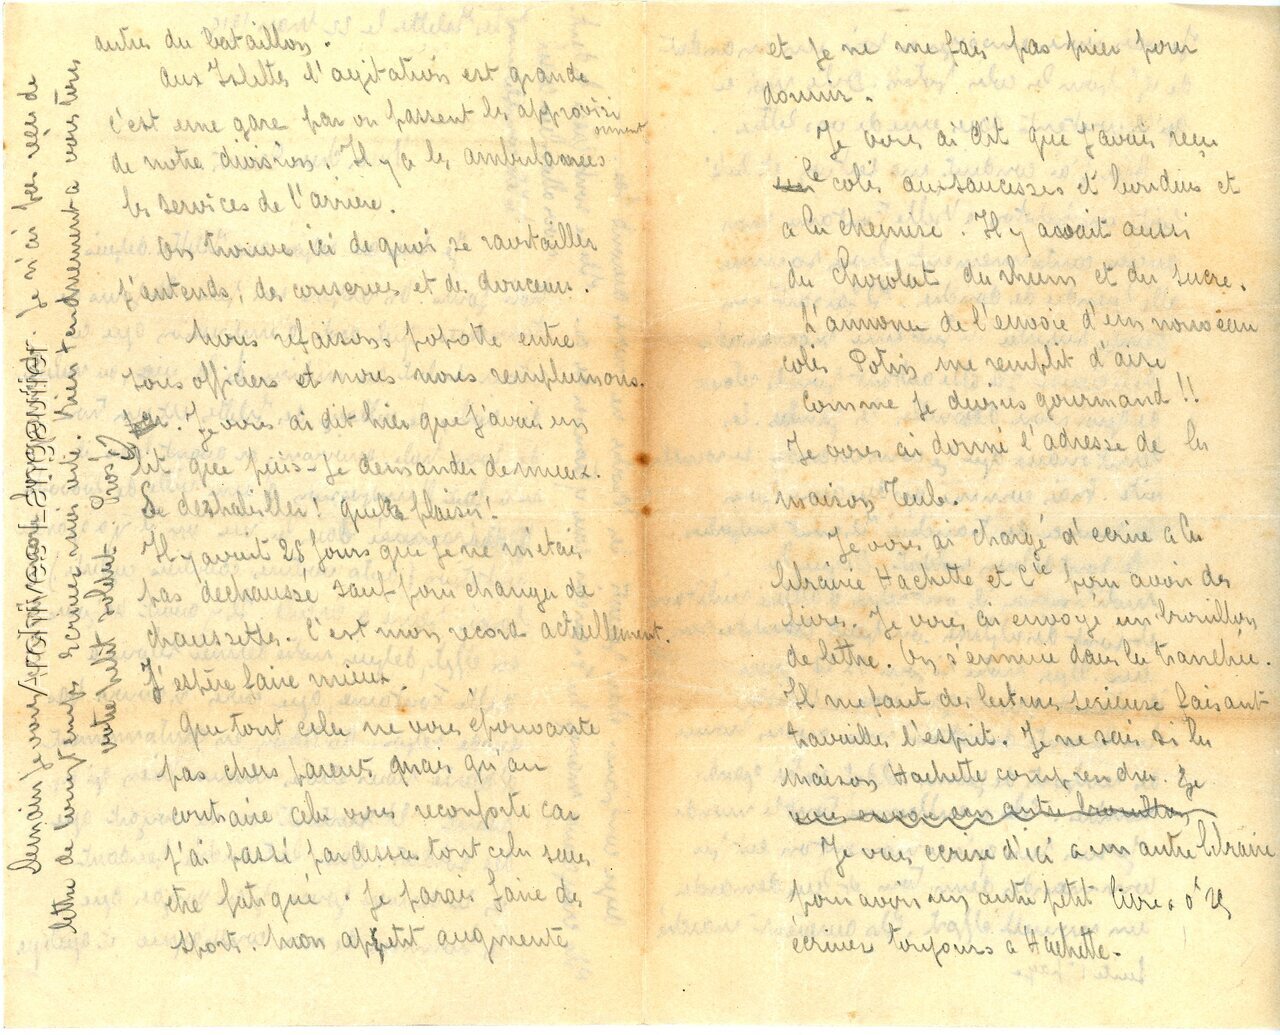 autres du bataillon.
Aux Islettes l'agitation est grande
c'est une gare par ou passent les approvisi
onnement
de notre division. Il y a les ambulances
les services de l'arrière.
On trouve ici de quoi se ravitailler
j'entends, des conserves et de douceurs.
Nous refaisons popote entre
sous officiers et nous nous remplumons.
Je vous ai dit hier que j'avais un
lit que puis-je demander de mieux.
Se deshabiller! quel plaisir!
Il y avait 28 jours que je ne m'etais
pas dechaussé sauf pour changer de
chaussettes. C'est mon record actuellement.
J'espère faire mieux
Que tout cela ne vous épouvante
pas chers parent, mais qu'au
contraire cela vous reconforte car
j'ai passé pardessus tout cela sans
etre fatigué. Je parais faire du
sport. Mon appetit augmente
et je ne me fais pas prier pour
dormir.
Je vous ai dit que j'avais reçu
le colis aux saucisses et boudins et
a la chemise. Il y avait aussi
du chocolat du rhum et du sucre.
L'annonce de l'envoie d'un nouveau
colis Potin me remplit d'aise
comme je deviens gourmand!!
Je vous ai donné l'adresse de la
maison
Je vous ai chargé d'ecrire a la
librairie Hachette et Cie pour avoir des
livres. Je vous ai envoyé un brouillon
de lettre. On s'ennuie dans la tranchée.
Il me faut des lectures serieuse faisant
travailler l'esprit. Je ne sais si la
maison Hachette comprendra. Je
vous envoie un autre brouillon
Je vous ecrire d'ici a un autre libraire
pour avoir un autre petit livre a 0f 25
écrivez toujours a Hachette.
Demain je vous. Je n'ai pas reçu de
lettre de longtemps ecrivez moi vite. Bien tendrement a vous tous
votre petit soldat